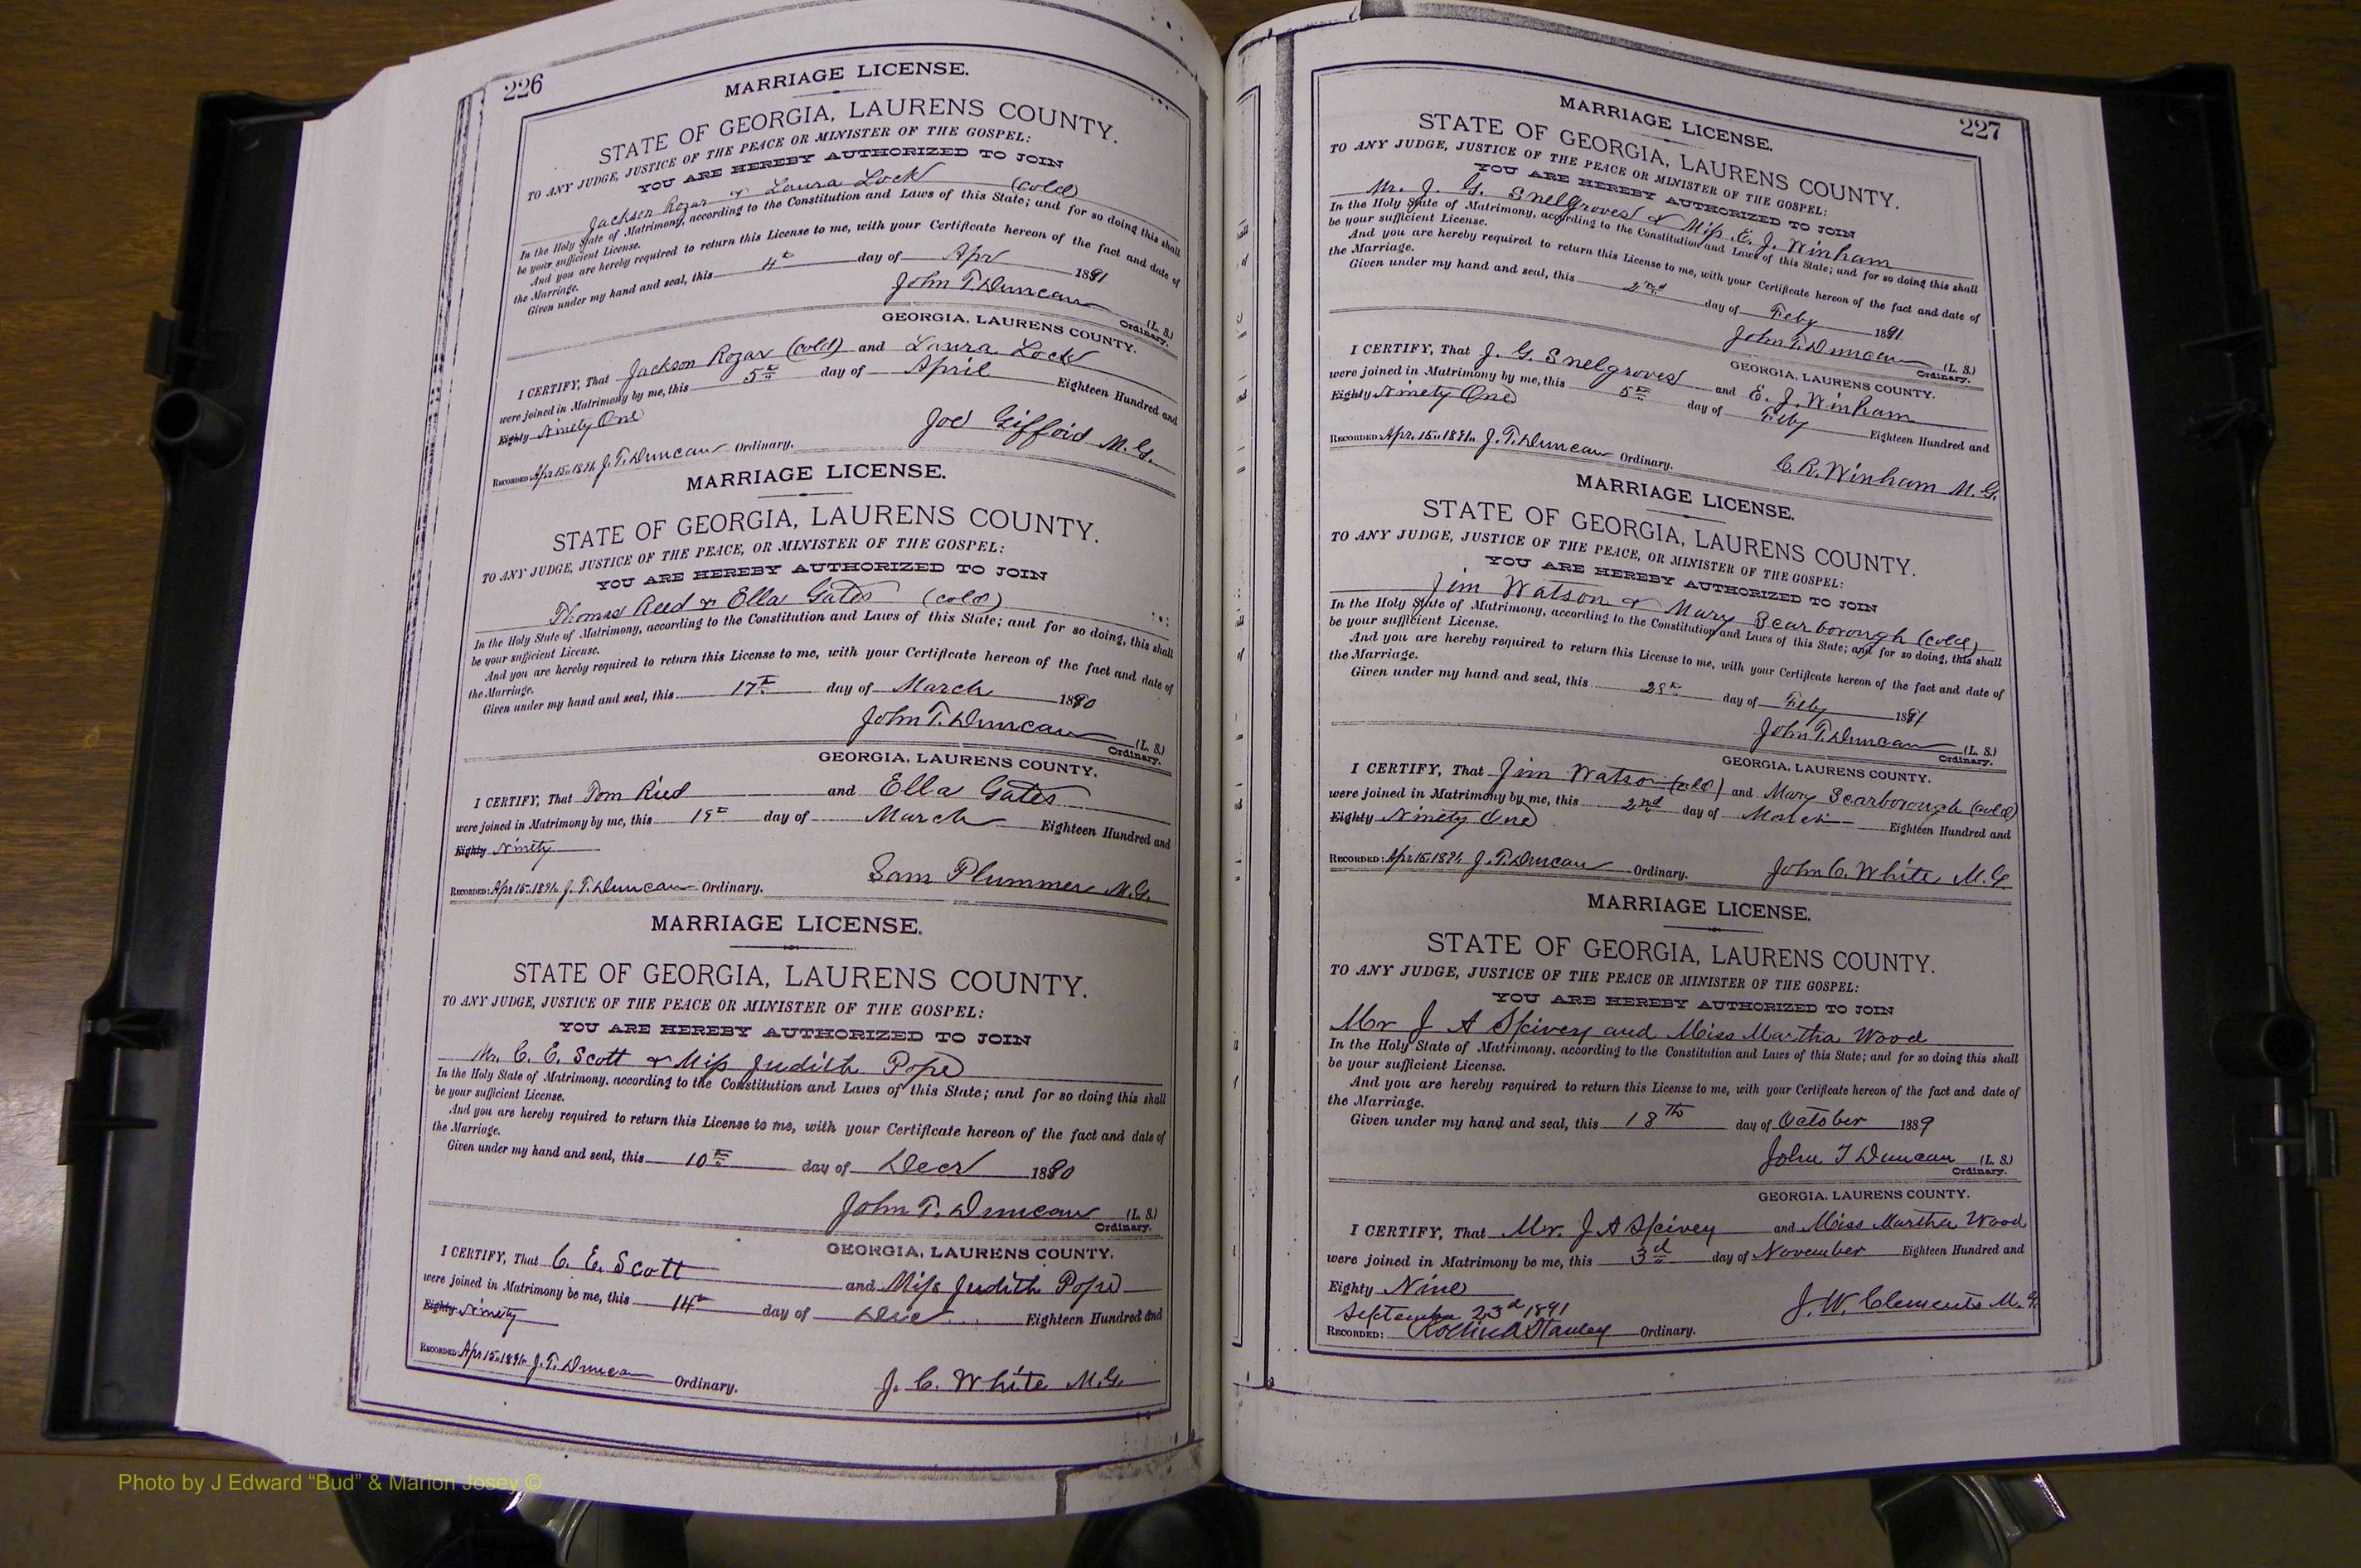 226
MARRIAGE LICENSE.
STATE OF GEORGIA, LAURENS COUNTY.
TO ANY JUDGE, JUSTICE OF THE PEACE OR MINISTER OF THE GOSPEL:
YOU ARE HEREBY AUTHORIZED TO JOIN
Jackson Rozar & Laura Lock (cold)
In the Holy State of Matrimony, according to the Constitution and Laws of this State; and for so doing this shall
be your sufficient License.
And you are hereby required to return this License to me, with your Certificate hereon of the fact and date of
the Marriage.
Given under my hand and seal, this 4th day of Apr 1891
John T. Duncan (L. S.)
Ordinary.
GEORGIA, LAURENS COUNTY.
I CERTIFY, That Jackson Rozar (cold) and Laura Lock
were joined in Matrimony by me, this 5th day of April Eighteen Hundred and
Eighty Ninety One
Joe Gifford M. G.
RECORDED Apr 15th 1891 J. T. Duncan Ordinary.
MARRIAGE LICENSE.
STATE OF GEORGIA, LAURENS COUNTY.
TO ANY JUDGE, JUSTICE OF THE PEACE, OR MINISTER OF THE GOSPEL:
YOU ARE HEREBY AUTHORIZED TO JOIN
Thomas Reed & Ella Gates (cold)
In the Holy State of Matrimony, according to the Constitution and Laws of this State; and for so doing, this shall
be your sufficient License.
And you are hereby required to return this License to me, with your Certificate hereon of the fact and date of
the Marriage.
Given under my hand and seal, this 17th day of March 1890
John T. Duncan (L. S.)
Ordinary.
GEORGIA, LAURENS COUNTY.
I CERTIFY, That Tom Ried and Ella Gates
were joined in Matrimony by me, this day of March Eighteen Hundred and
Eighty Ninety
Sam Plummer M. G.
RECORDED: Apr 15th 1891 J. T. Duncan Ordinary.
MARRIAGE LICENSE.
STATE OF GEORGIA, LAURENS COUNTY.
TO ANY JUDGE, JUSTICE OF THE PEACE OR MINISTER OF THE GOSPEL:
YOU ARE HEREBY AUTHORIZED TO JOIN
Mr. C. E. Scott & Miss Judith Pope
In the Holy State of Matrimony, according to the Constitution and Laws of this State; and for so doing this shall
be your sufficient License.
And you are hereby required to return this License to me, with your Certificate hereon of the fact and date of
the Marriage.
Given under my hand and seal, this 10th day of Decr 1890
John T. Duncan (L. S.)
Ordinary.
GEORGIA, LAURENS COUNTY.
I CERTIFY, That C. E. Scott and Miss Judith Pope
were joined in Matrimony be me, this 14th day of Eighteen Hundred and
Eighty Ninety
J. C. White M. G.
RECORDED Apr 15th 1891 J. T. Duncan Ordinary.
227
MARRIAGE LICENSE.
STATE OF GEORGIA, LAURENS COUNTY.
TO ANY JUDGE, JUSTICE OF THE PEACE OR MINISTER OF THE GOSPEL:
YOU ARE HEREBY AUTHORIZED TO JOIN
Mr. J. G. Snelgroves & Miss E. J. Winham
In the Holy State of Matrimony, according to the Constitution and Laws of this State; and for so doing this shall
be your sufficient License.
And you are hereby required to return this License to me, with your Certificate hereon of the fact and date of
the Marriage.
Given under my hand and seal, this 2nd day of Feby 1891
John T. Duncan (L. S.)
Ordinary.
GEORGIA, LAURENS COUNTY.
I CERTIFY, That J. G. Snelgroves and E. J. Winham
were joined in Matrimony by me, this 5th day of Feby Eighteen Hundred and
Eighty Ninety One
C. R. Winham M. G.
RECORDED Apr. 15th 1891 J. T. Duncan Ordinary.
MARRIAGE LICENSE.
STATE OF GEORGIA, LAURENS COUNTY.
TO ANY JUDGE, JUSTICE OF THE PEACE, OR MINISTER OF THE GOSPEL:
YOU ARE HEREBY AUTHORIZED TO JOIN
Jim Watson & Mary Scarborough (cold)
In the Holy State of Matrimony, according to the Constitution and Laws of this State; and for so doing, this shall
be your sufficient License.
And you are hereby required to return this License to me, with your Certificate hereon of the fact and date of
the Marriage.
Given under my hand and seal, this 28th day of Feby 1891
John T. Duncan (L. S.)
Ordinary.
GEORGIA, LAURENS COUNTY.
I CERTIFY, That Jim Watson (cold) and Mary Scarborough (cold)
were joined in Matrimony by me, this 2nd day of March Eighteen Hundred and
Eighty Ninety One
John C. White M. G.
RECORDED: Apr 15th 1891 J. T. Duncan Ordinary.
MARRIAGE LICENSE.
STATE OF GEORGIA, LAURENS COUNTY.
TO ANY JUDGE, JUSTICE OF THE PEACE OR MINISTER OF THE GOSPEL:
YOU ARE HEREBY AUTHORIZED TO JOIN
Mr J A Spivey and Miss Martha Wood
In the Holy State of Matrimony, according to the Constitution and Laws of this State; and for so doing this shall
be your sufficient License.
And you are hereby required to return this License to me, with your Certificate hereon of the fact and date of
the Marriage.
Given under my hand and seal, this 18th day of October 1889
John T Duncan (L. S.)
Ordinary.
GEORGIA, LAURENS COUNTY.
I CERTIFY, That Mr. J A Spivey and Miss Martha Wood
were joined in Matrimony be me, this 3d day of November Eighteen Hundred and
Eighty Nine
J. W. Clements M. G.
September 23d 1891
RECORDED: Rollin A Stanley Ordinary.
Photo by J Edward “Bud” & Marion Josey ©